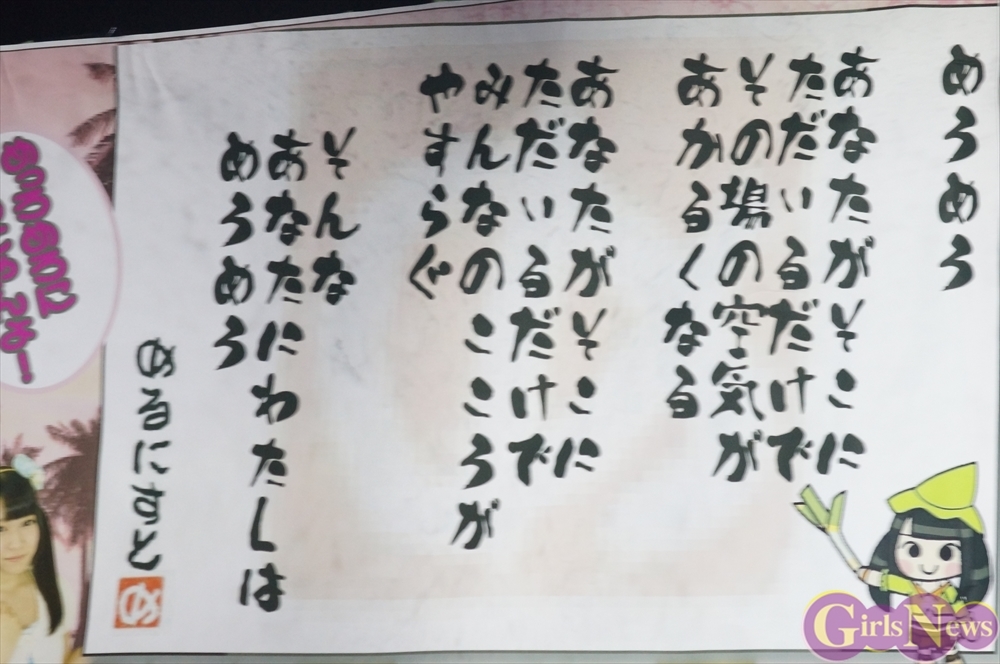 めうめう
あなたがそこに
ただいるだけで
その場の空気が
あかるくなる
あなたがそこに
ただいるだけで
みんなのこころが
やすらぐ
そんな
あなたにわたしは
めうめう
めるにすと
め
GirlsNews